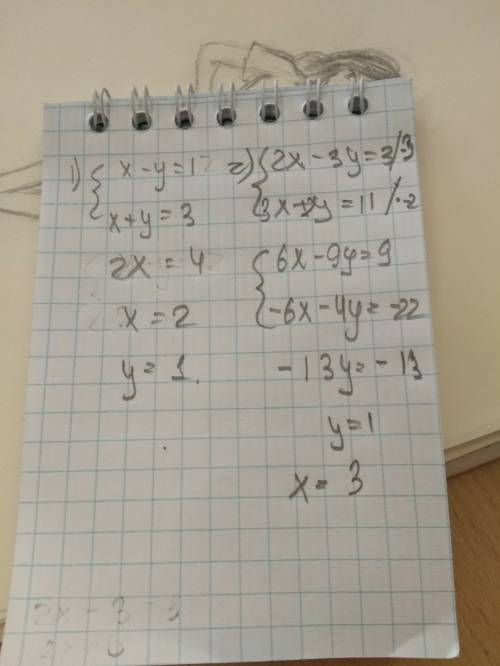 1) { x - y = 1
x + y = 3
2x = 4
x = 2
y = 1.
2) { 2x - 3y = 3 /·3
3x + 2y = 11 /·-2
{ 6x - 9y = 9
-6x - 4y = -22
-13y = -13
y = 1
x = 3